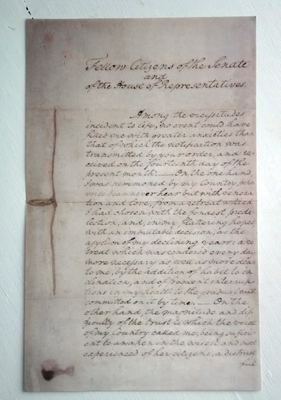 Fellow Citizens of the Senate
and
of the House of Representatives.
Among the vicissitudes
incident to life, no event could have
filled me with greater anxieties than
that of which the notification was
transmitted by your order, and re
ceived on the fourteenth day of the
present month:—On the one hand,
I was summoned by my Country, whose
voice I can never hear but with venera
tion and love, from a retreat which
I had chosen with the fondest predi
lection, and, in my flattering hopes,
with an immutable decision, as the
asylum of my declining years: a re
treat which was rendered every day
more necessary as well as more dear
to me, by the addition of habit to in
clination, and of frequent interrup
tions in my health to the gradual waste
committed on it by time.—On the
other hand, the magnitude and dif
ficulty of the trust to which the voice
of my Country called me, being suffici
ent to awaken in the wisest and most
experienced of her citizens, a distrust
ful